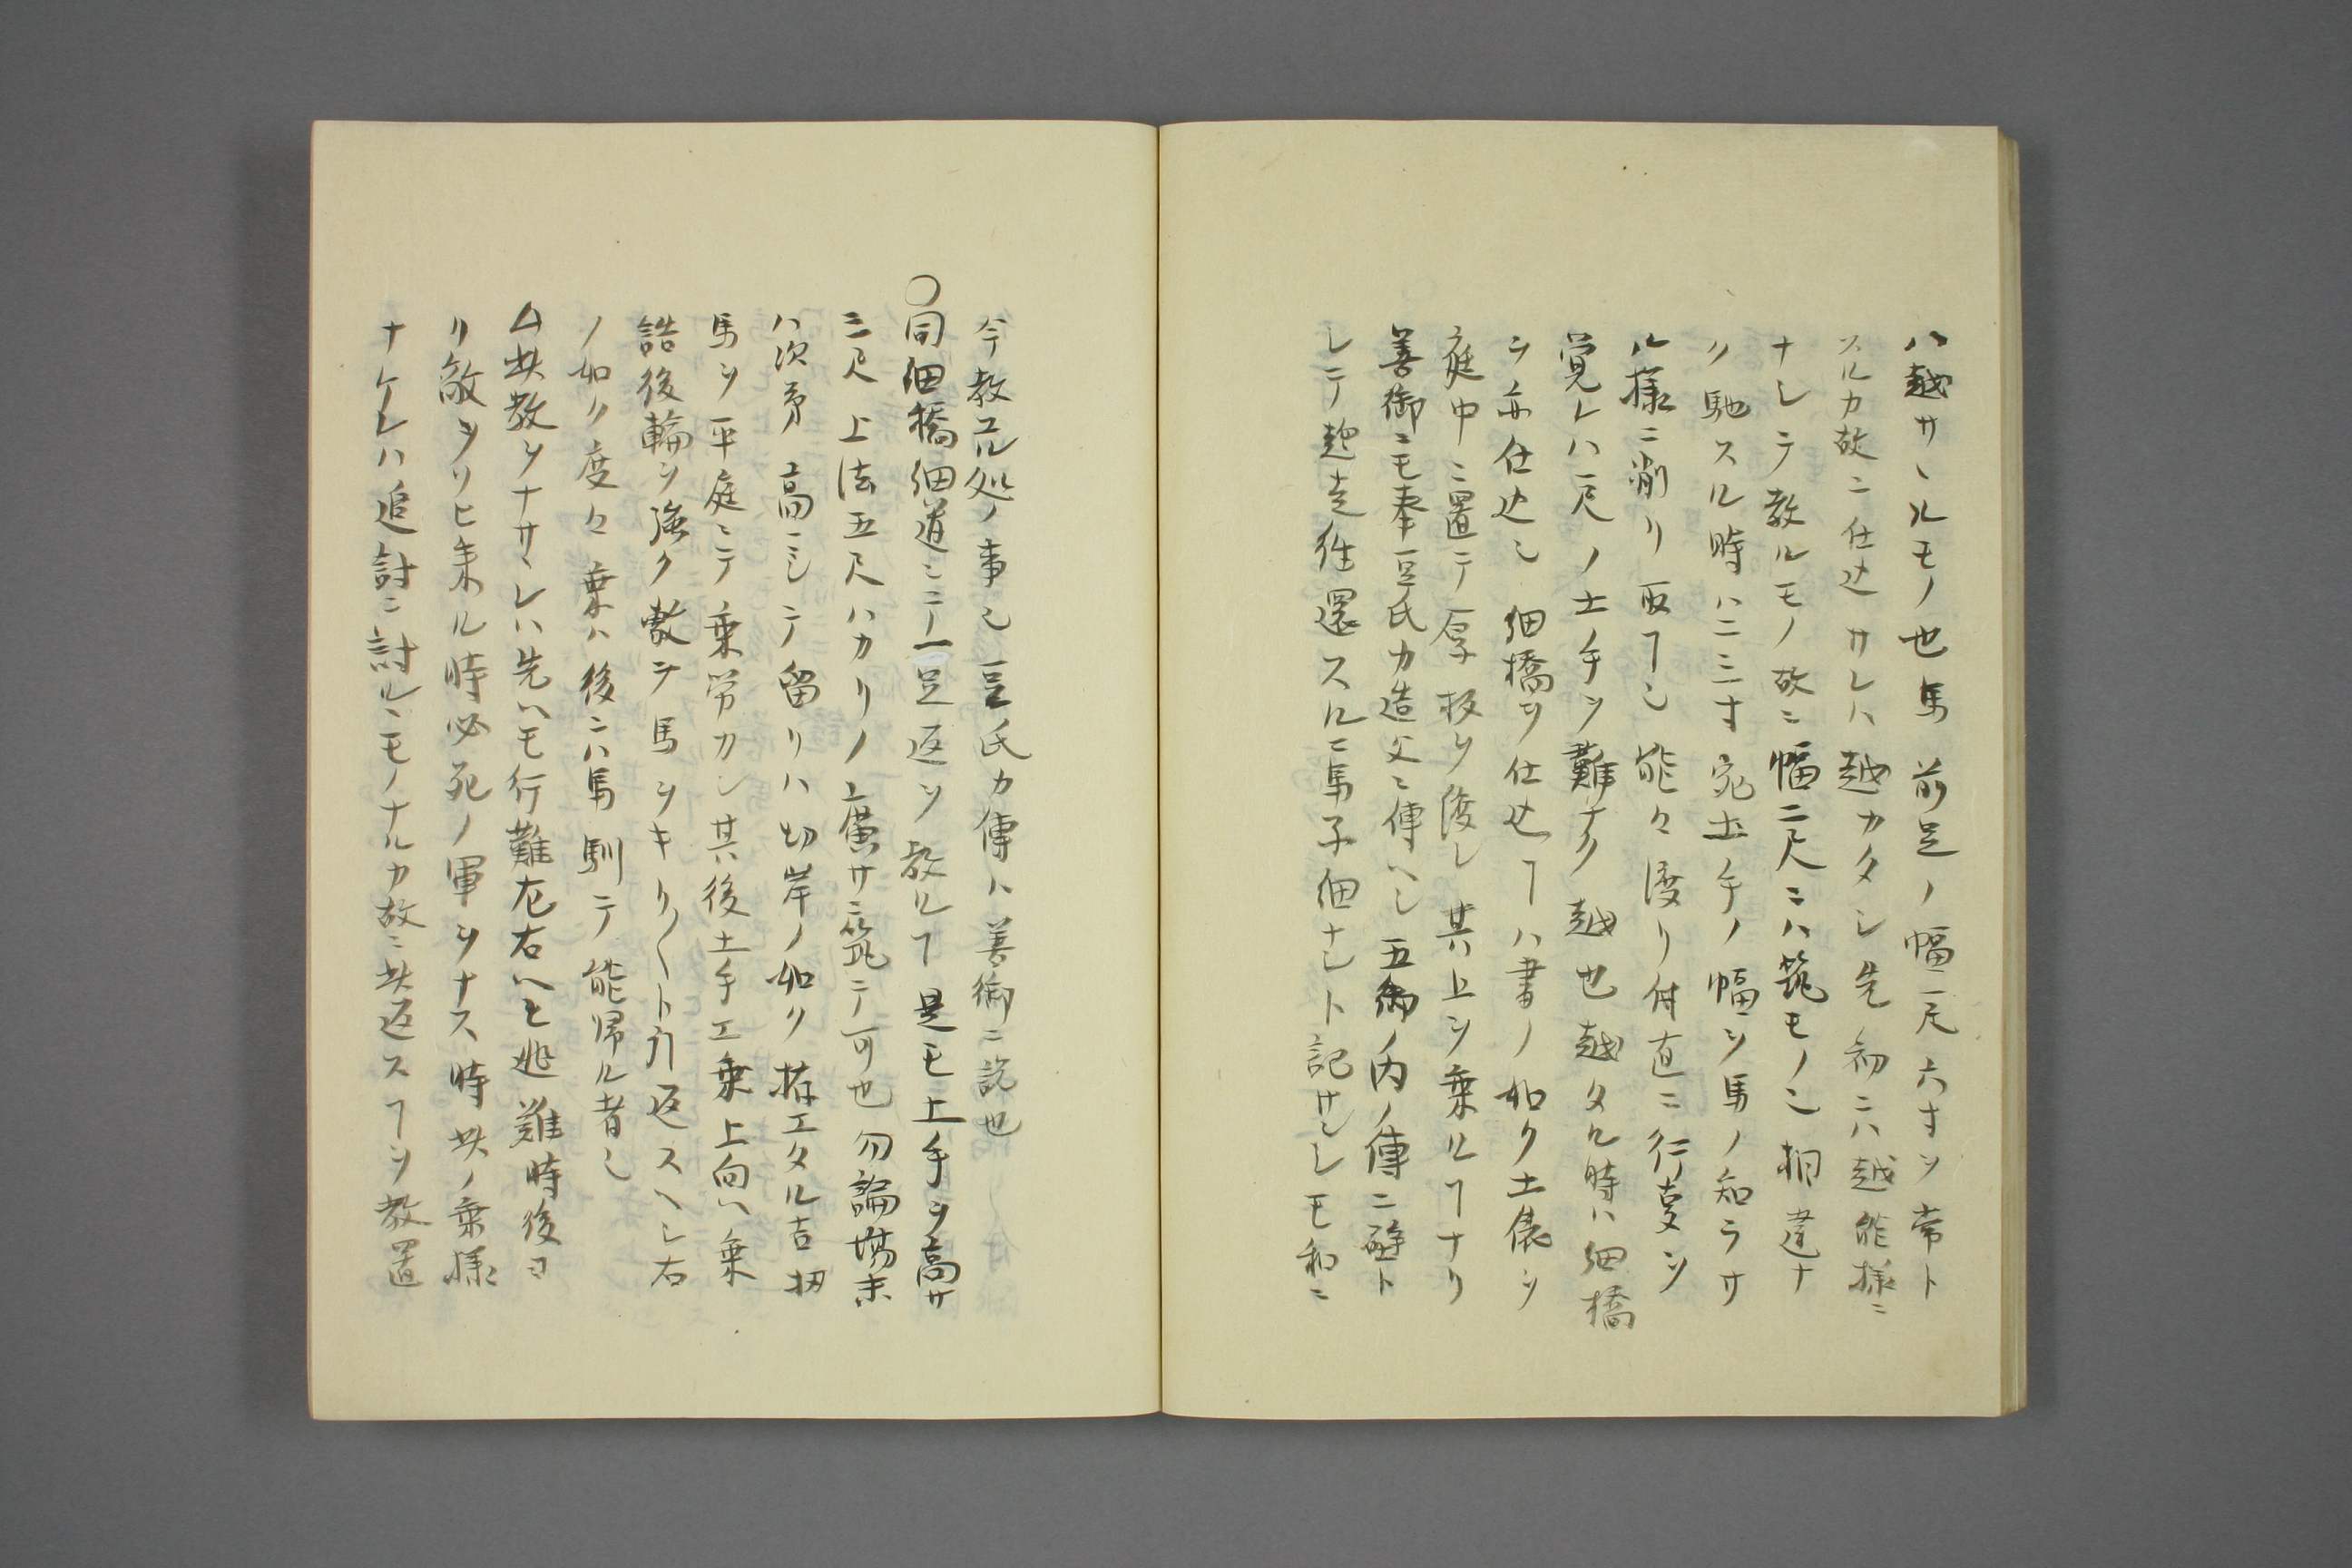 ハ越サヽルモノ也馬前足ノ幅一尺六寸ヲ常ト
スルカ故ニ仕込サレハ越カタシ先初ニハ越能様ニ
ナレテ教ルモノ故ニ幅二尺ニハ築モノ也相違ナ
ク馳スル時ハ二三寸宛土手ノ幅ヲ馬ノ知ラサ
ル様ニ削リ取ヿ也能々渡リ付直ニ行叓ヲ
覚レハ一尺ノ土手ヲ難ナク越也越タル時ハ細橋
ヲ亦仕込也細橋ヲ仕込ヿハ書ノ如ク土俵ヲ
庭中ニ置テ厚板ヲ渡シ其上ヲ乗ルヿナリ
善御ニモ奉豆氏カ造父ニ傳ヘシ五御ノ内ノ傳ニ碎ト
シテ趣走往還スルニ馬子細ナシト記サレシモ和ニ
今教ユル処ノ事也豆氏カ傳ハ善御ニ説也
○同細橋細道ニテ一足返ヲ教ルヿ是モ土手ヲ高サ
三尺上法五尺ハカリノ廣サニ築テ可也勿論場末
ハ次第高ニシテ留リハ切岸ノ如ク拵エタル吉扨
馬ヲ平庭ニテ乗労カシ其後土手エ乗上向ヘ乗
詰後輪ヲ強ク敷テ馬ヲキリ〳〵ト引返スヘシ右
ノ如ク度々乗ハ後ニハ馬馴テ能帰ル者也
△此教ヲナサヽレハ先ヘモ行難左右ヘモ逃難時後ヨ
リ敵ヲソヒ来ル時必死ノ軍ヲナス時此ノ乗様
ナケレハ追討ニ討ルヽモノナルカ故ニ此返スヿヲ教置